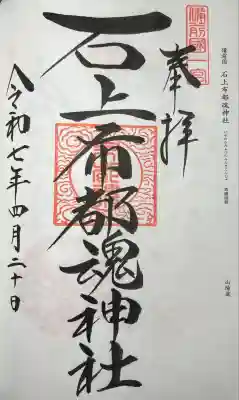 備前國 石上布都魂神社
奉拝
備前國一宮
石上布都魂神社
令和七年四月二十日